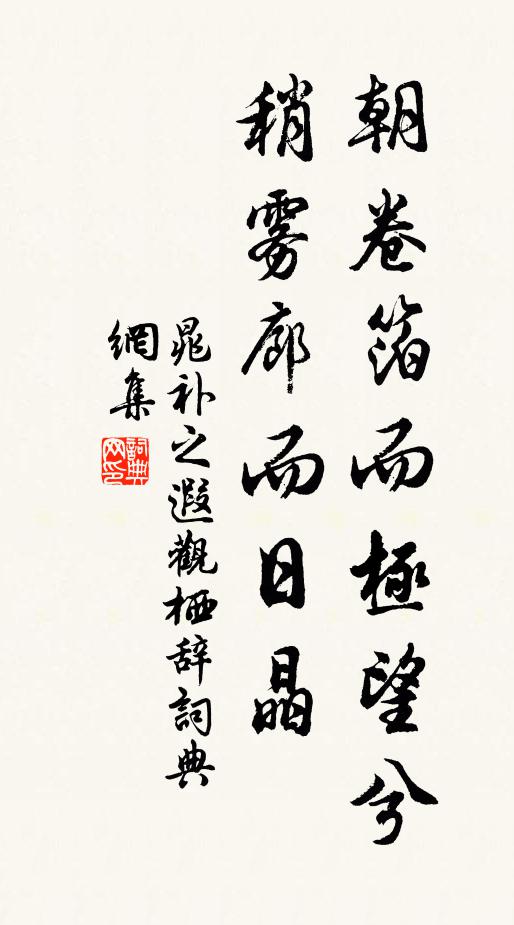 朝卷箔而極望兮
稍雾廊而日晶
晁补之遐觀栖辞詞典
網集
詞典网印